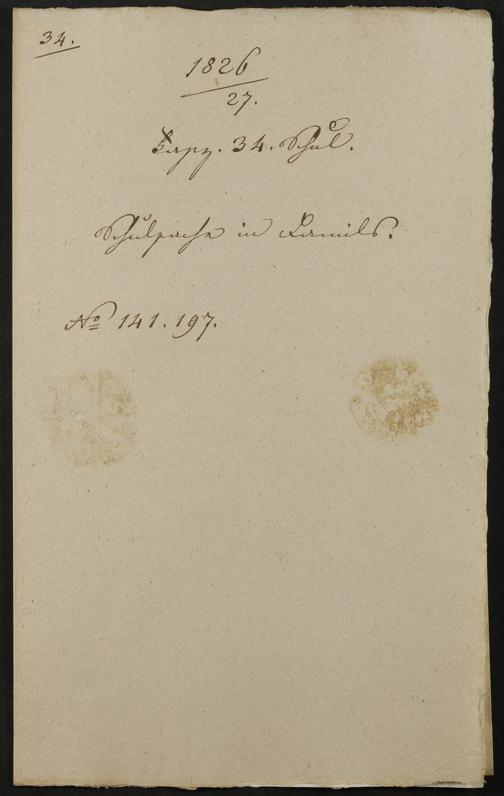 34.
1826
27.
Fasz. 34. Schul.
Schulsache in Kamils.
No 141. 197.